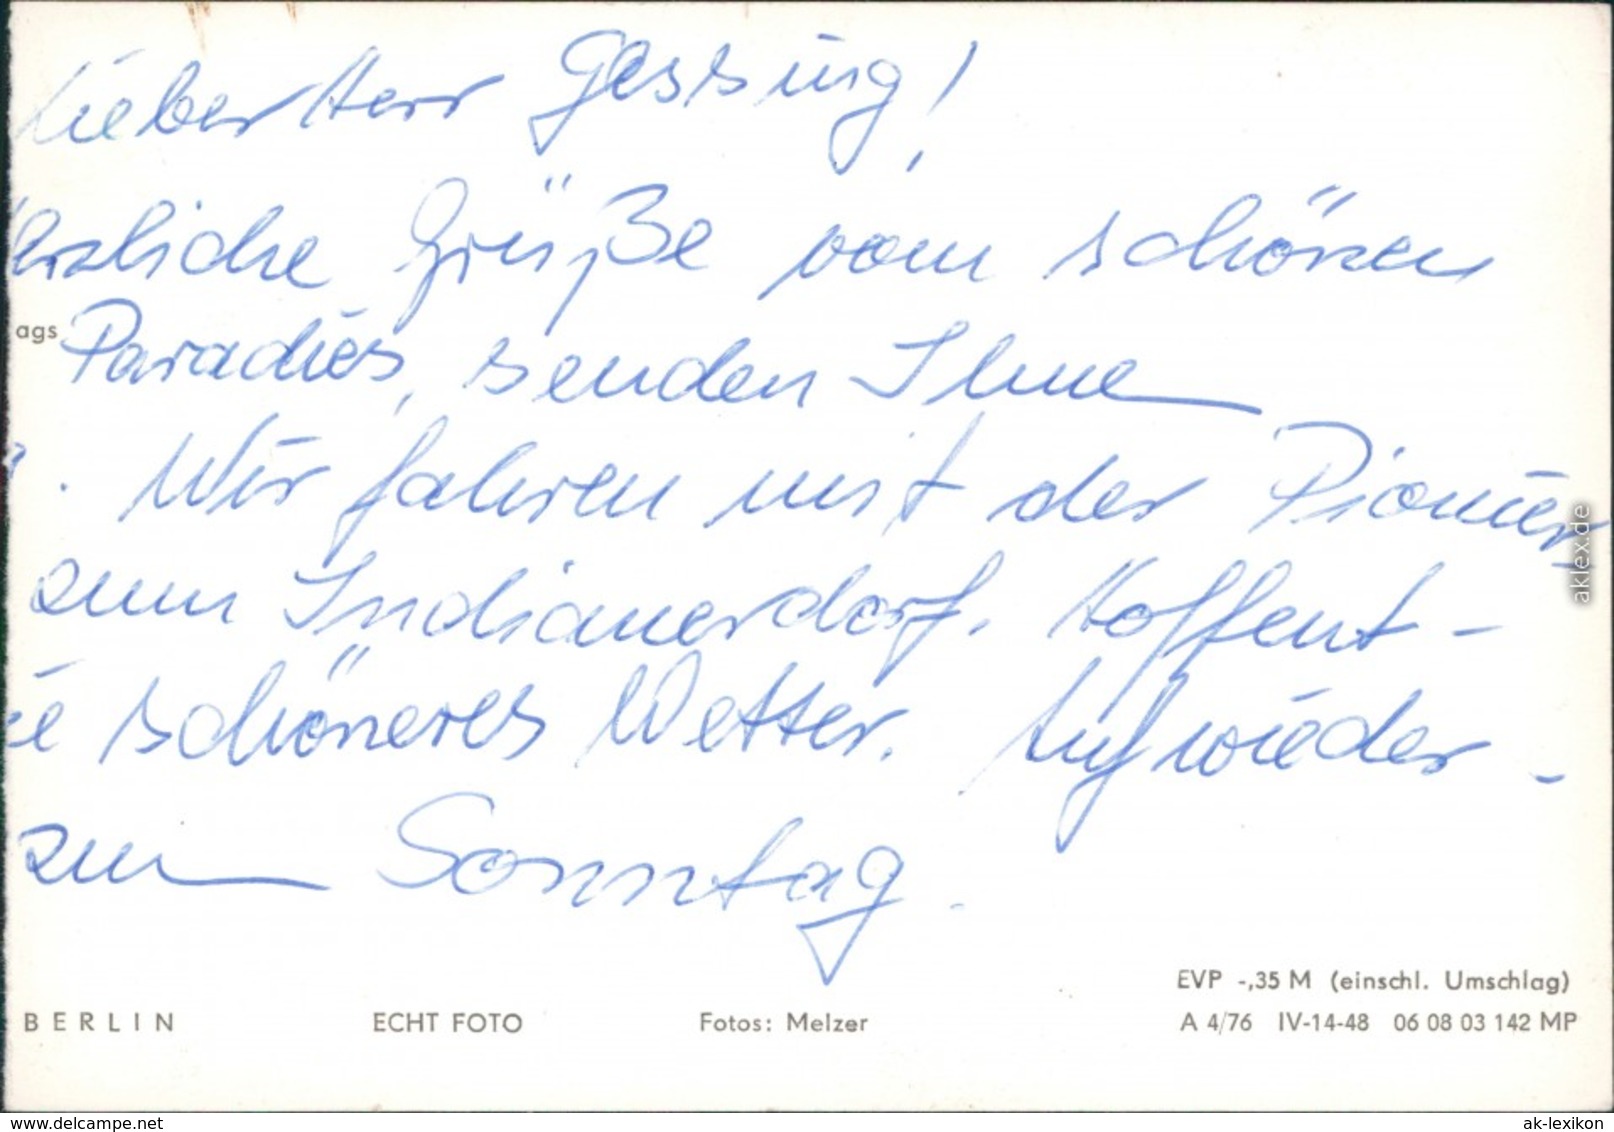 Lieber Herr Gessing!
erzliche Grüße vom schönen
ags
Paradies, senden Ihne
. Wir fahren mit der Pionier
zum Indianerdorf. Hoffent-
e schöneres Wetter. Aufwieder-
zum Sonntag.
EVP -,35 M (einschl. Umschlag)
BERLIN ECHT FOTO Fotos: Melzer A 4/76 IV-14-48 06 08 03 142 MP
aklex.de
www.delcampe.net ak-lexikon